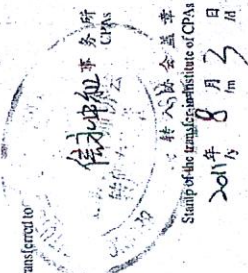 ansferred to
信永中和 事务所
CPAs
转入协会盖章
Stamp of the transfer-in Institute of CPAs
2011年 8月 3日
/y /m /d